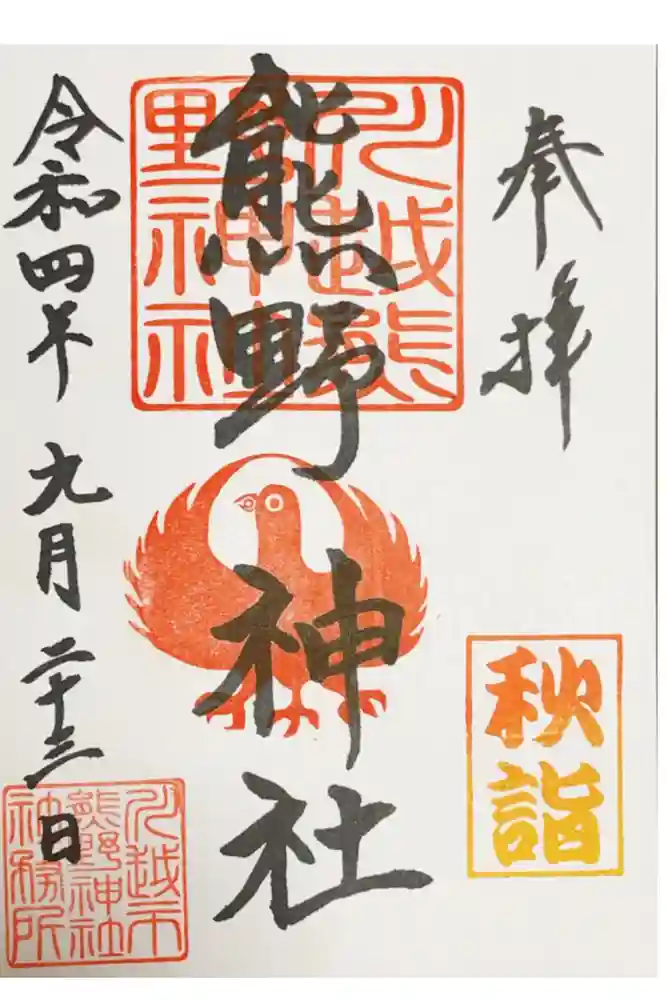 奉拝
秋詣
熊野神社
川越熊
野神社
令和四年九月二十三日
川越市
熊野神社
社務所